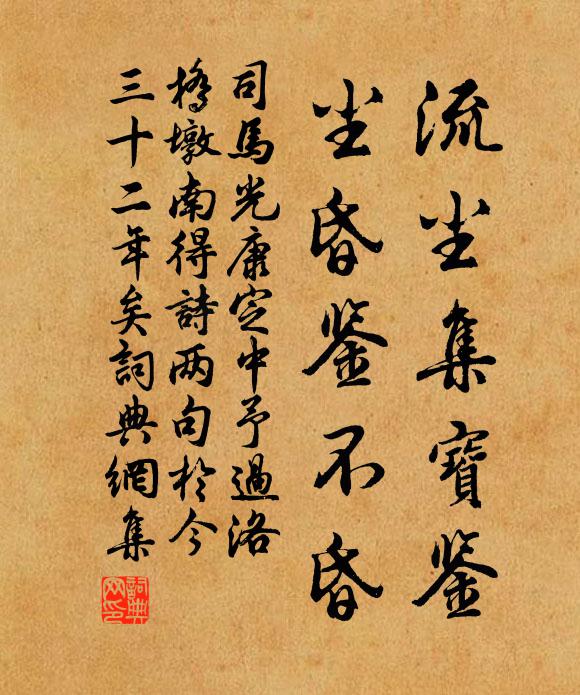 流尘集寶鉴
尘昏鉴不昏
司馬光康定中予過洛
橋墩南得詩两句於今
三十二年矣詞典網集
詞典网印